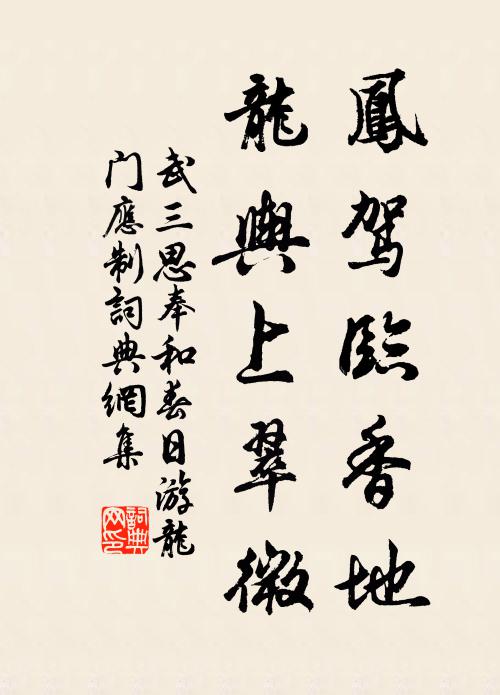 鳳駕臨香地
龍輿上翠微
武三思奉和春日游龍
门應制詞典網集
詞典网印